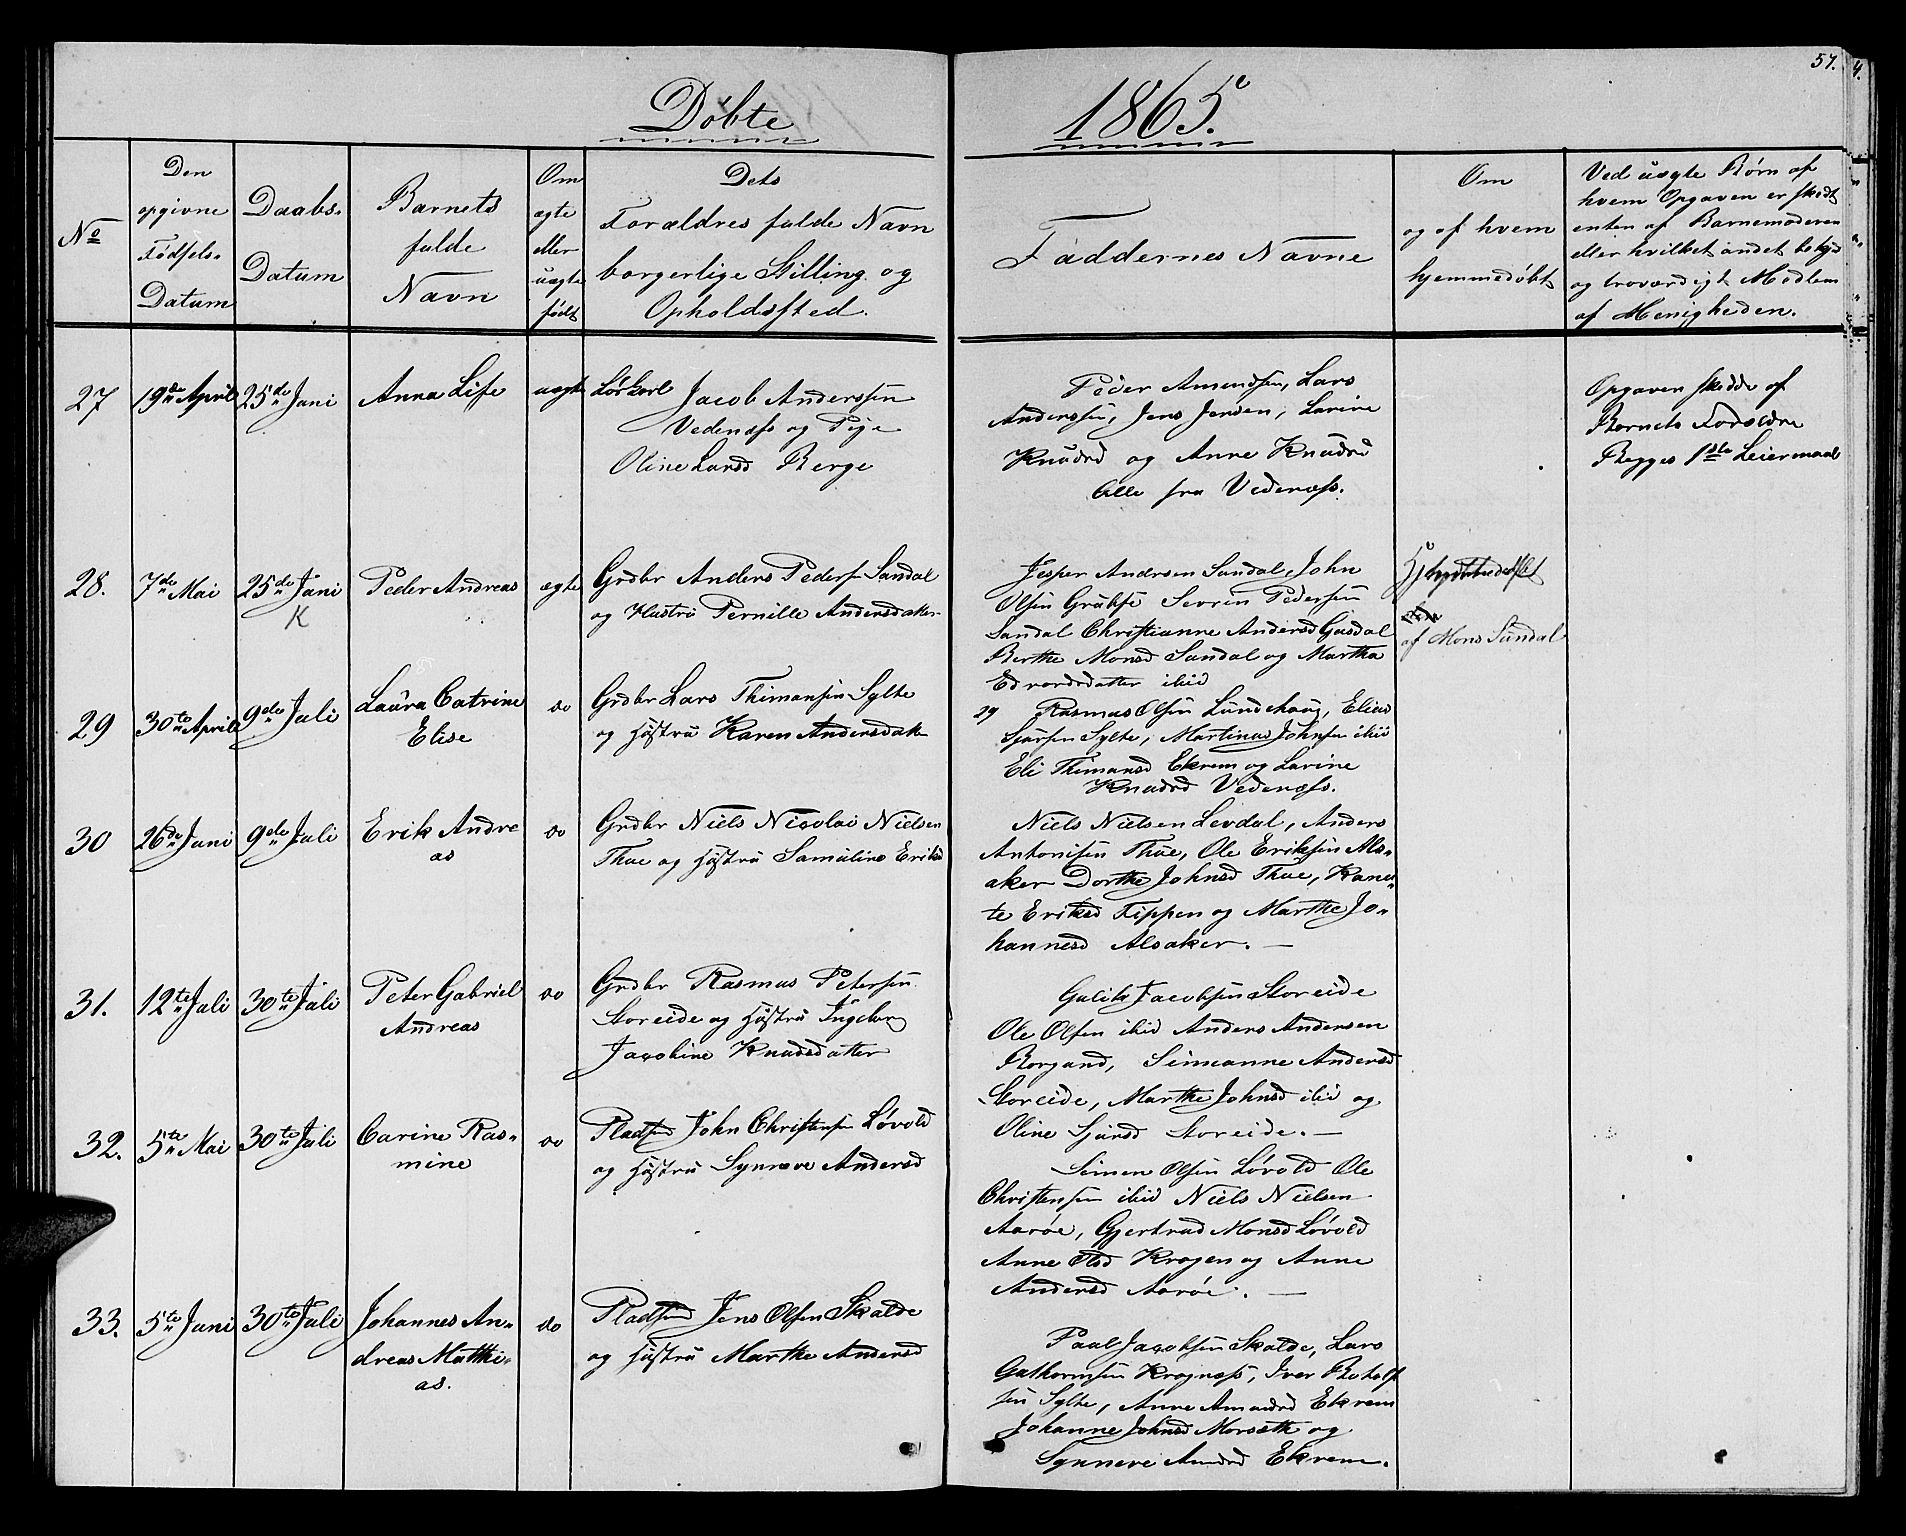 57.
Døbte 1865.
No
Den opgivne Fødsels-Datum
Daabs-Datum
Barnets fulde Navn
Om ægte eller uægte født
Dets Forældres fulde Navn borgerlige Stilling og Opholdssted.
Faddernes Navne
Om og af hvem hjemmedøbt
Ved uægte Børn af hvem Opgaven er skedt enten af Barnemoderen eller hvilket andet
og troværdigt Medlem af Menigheden.
27
19de April
25de Juni
Anna Lise
uægte
Jacob Anderssen
Vedenæss og Pige
Oline Larsd Berge
Peder Amundsen, Lars
Anderssen, Jens Jensen, Larine
Knudsd og Anne Knudsd
Alle fra Vedenæss.
Opgaven skedde af
Barnets Forældre
Begges 1ste Leiermaal
28.
7de Mai
25de Juni
K
Peder Andreas
ægte
Grdbr Anders Peders Sundal
og Hustru Pernille Andersdaker
Jesper Andersen Sundal, John
Olsen Grubse Sevrin Pedersen
Sundal Christianne Andersd Gusdal
Berthe Monsd Sundal og Martha
Edvardsdatter ibid
af Mons Sundal
29
30te April
9de Juli
Laura Catrine
Elise
do
Grdbr Lars Thimansen Sylte
og Hustru Karen Andersdak
29 Rasmus Olsen Lundehaug, Elias
Sjursen Sylte, Martinus Johnsen ibid
Eli Thimansd Ekrem og Larine
Knudsd Vedenæss.
30
26de Juni
9de Juli
Erik Andre
as
do
Grdbr Niels Nicolai Nielsen
Thue og Hustru Samuline Eriksd
Niels Nielsen Levdal, Anders
Antonisen Thue, Ole Eriksen Als-
aker Dorthe Johnsd Thue, Kane-
te Eriksd Fippen og Marthe Jo-
hannesd Alsaker. —
31.
12te Juli
30te Juli
Peter Gabriel
Andreas
do
Grdbr Rasmus Petersen
Storeide og Hustru Ingeborg
Jacobine Knudsdatter
Gulik Jacobsen Storeide
Ole Olsen ibid Anders Andersen
Borgund, Simianne Andersd
Storeide, Marthe Johnsd ibid og
Oline Sjursd Storeide. —
32.
5te Mai
30te Juli
Carine Ras-
mine
do
Pladsm John Christensen Løvold
og Hustru Synneve Andersd
Simen Olsen Løvold Ole
Christensen ibid Niels Nielsen
Aarøe, Gjertrud Monsd Løvold
Anne Olsd Krogen og Anne
Andersd Aarøe. —
33.
5te Juni
30te Juli
Johannes An-
dreas Matthi-
as.
do
Pladsm Jens Olsen Skalde
og Hustru Marthe Andersd
Paul Jacobsen Skalde, Lars
Guthormsen Krognæss, Iver Botolf
sen Sylte, Anne Amundsd Ekrem
Johanne Johnsd Morsæth og
Synneve Amundsd Ekrem.